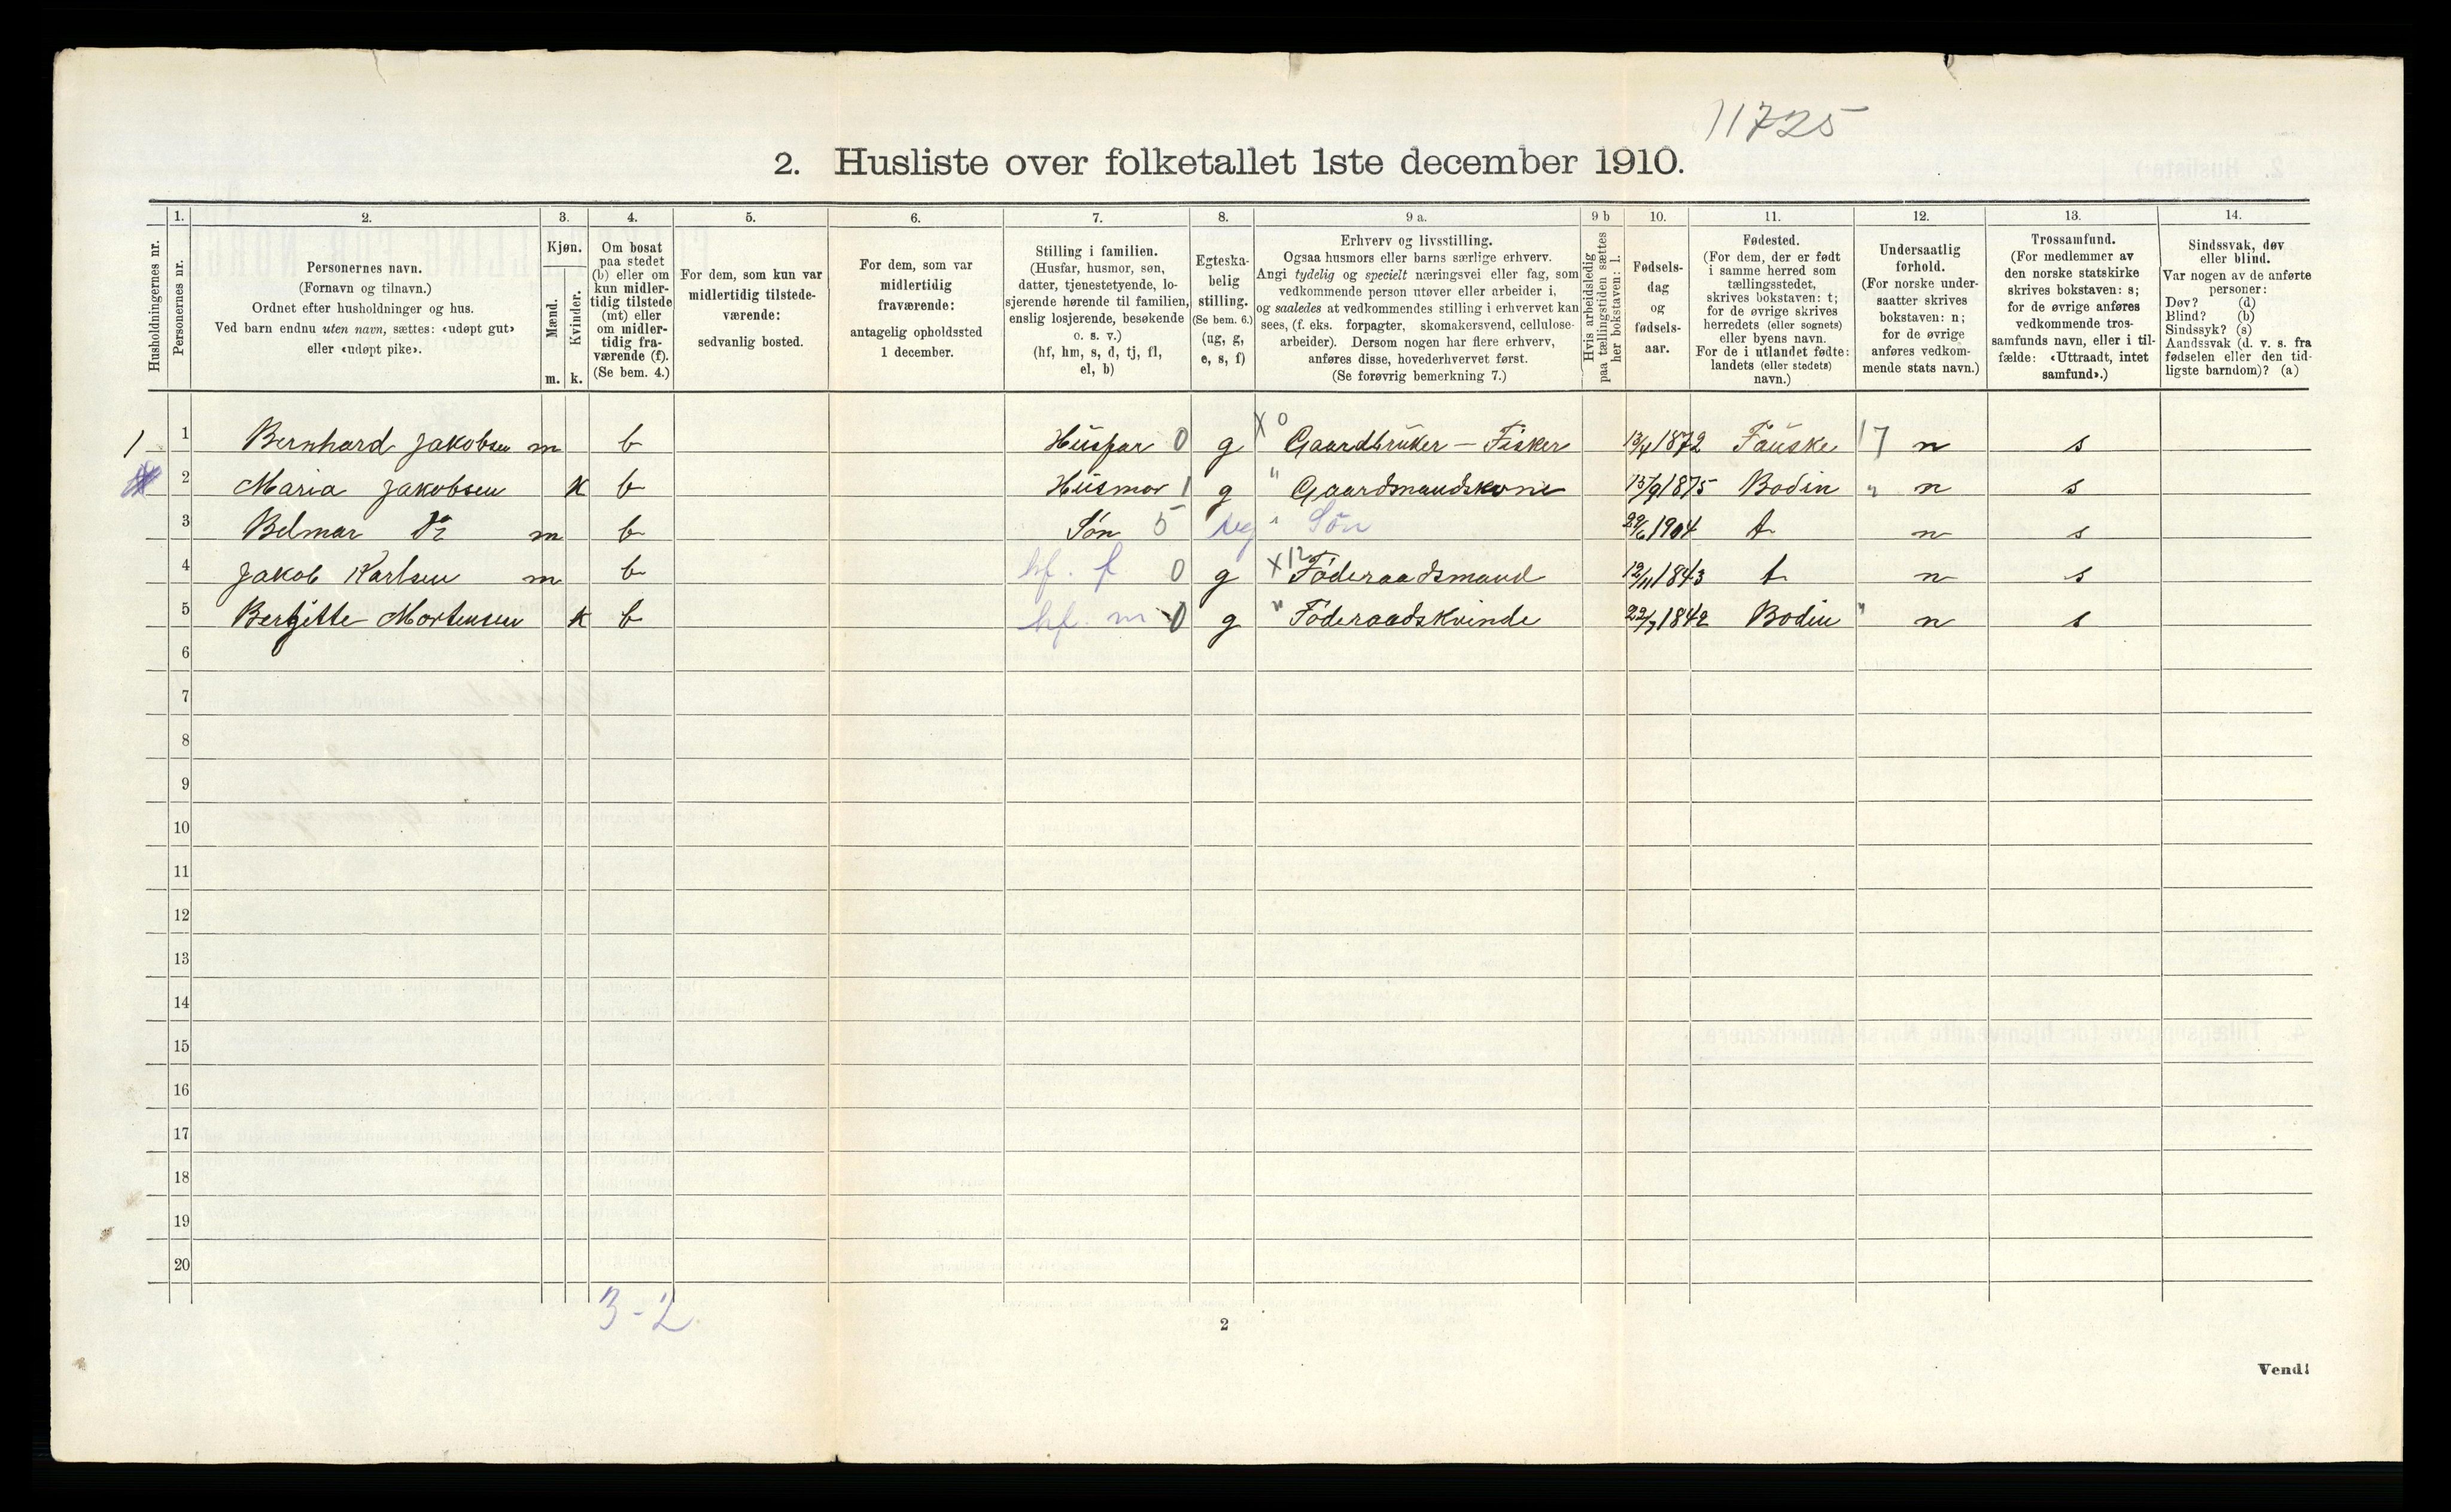 11725
2. Husliste over folketallet 1ste december 1910.
Husholdningernes nr.
1.
Personernes nr.
2.
Personernes navn.
(Fornavn og tilnavn.)
Ordnet efter husholdninger og hus.
Ved barn endnu uten navn, sættes: «udøpt gut»
eller «udøpt pike».
3.
Kjøn.
Mænd.
Kvinder.
m. k.
4.
Om bosat
paa stedet
(b) eller om
kun midler-
tidig tilstede
(mt) eller
om midler-
tidig fra-
værende (f).
(Se bem. 4.)
5.
For dem, som kun var
midlertidig tilstede-
værende:
sedvanlig bosted.
6.
For dem, som var
midlertidig
fraværende:
antagelig opholdssted
1 december.
7.
Stilling i familien.
(Husfar, husmor, søn,
datter, tjenestetyende, lo-
sjerende hørende til familien,
enslig losjerende, besøkende
o. s. v.)
(hf, hm, s, d, tj, fl,
el, b)
8.
Egteska-
belig
stilling.
(Se bem. 6.)
(ug, g,
e, s, f)
9 a.
Erhverv og livsstilling.
Ogsaa husmors eller barns særlige erhverv.
Angi tydelig og specielt næringsvei eller fag, som
vedkommende person utøver eller arbeider i,
og saaledes at vedkommendes stilling i erhvervet kan
sees, (f. eks. forpagter, skomakersvend, cellulose-
arbeider). Dersom nogen har flere erhverv,
anføres disse, hovederhvervet først.
(Se forøvrig bemerkning 7.)
9 b
Hvis arbeidsledig
paa tællingstiden sættes
her bokstaven: l.
10.
Fødsels-
dag
og
fødsels-
aar.
11.
Fødested.
(For dem, der er født
i samme herred som
tællingsstedet,
skrives bokstaven: t;
for de øvrige skrives
herredets (eller sognets)
eller byens navn.
For de i utlandet fødte:
landets (eller stedets)
navn.)
12.
Undersaatlig
forhold.
(For norske under-
saatter skrives
bokstaven: n;
for de øvrige
anføres vedkom-
mende stats navn.)
13.
Trossamfund.
(For medlemmer av
den norske statskirke
skrives bokstaven: s;
for de øvrige anføres
vedkommende tros-
samfunds navn, eller i til-
fælde: «Uttraadt, intet
samfund».)
14.
Sindssvak, døv
eller blind.
Var nogen av de anførte
personer:
Døv? (d)
Blind? (b)
Sindssyk? (s)
Aandssvak (d. v. s. fra
fødselen eller den tid-
ligste barndom)? (a)
1 1 Bernhard Jakobsen m b Husfar 0 g X0 Gaardbruker - Fisker 13/4 1872 Fauske 17 n s
2 Maria Jakobsen k b Husmor 1 g " Gaardmandskone 15/9 1875 Bodin " n s
3 Belmar Do m b Søn 5 ug " Søn 29/6 1904 t n s
4 Jakob Karlsen m b hf. f 0 g X12 Føderaadsmand 12/11 1843 t n s
5 Bergitte Mortensen k b hf. m 0 g " Føderaadskvinde 22/7 1842 Bodin " n s
6
7
8
9
10
11
12
13
14
15
16
17
18
19
20
3-2
2
Vend!